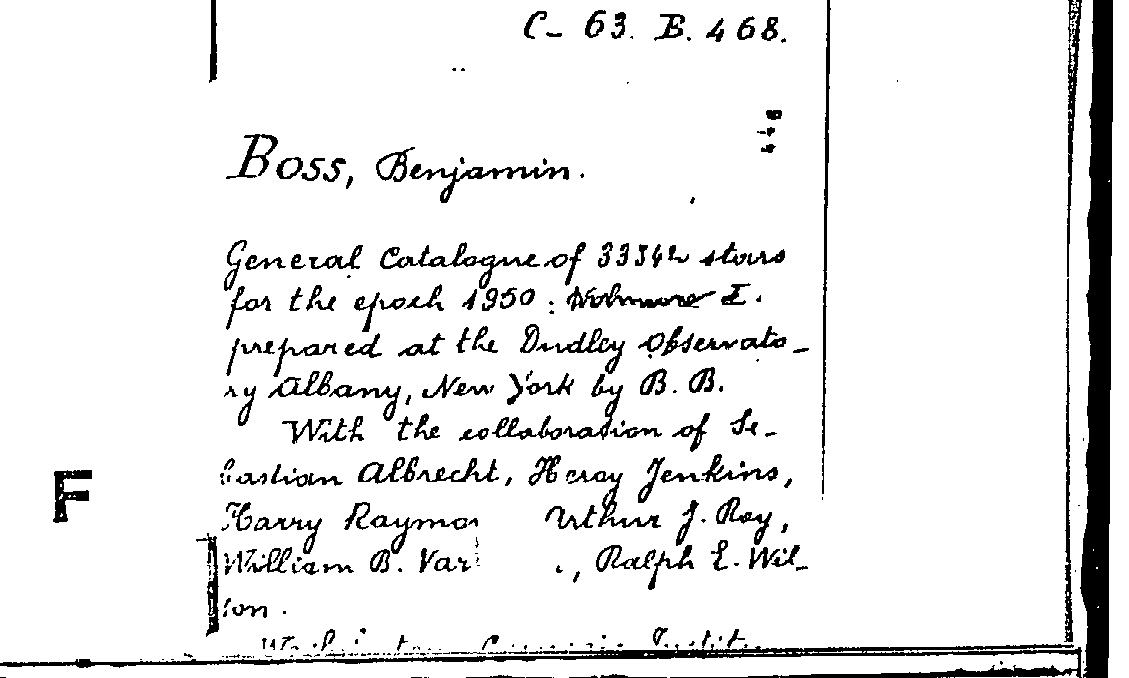 C- 63. B. 468.
446
Boss, Benjamin.
General Catalogue of 33342 stars
for the epoch 1950: I.
prepared at the Dudley Observato-
ry Albany, New York by B. B.
With the collaboration of Se-
bastian Albrecht, Heroy Jenkins,
F
Harry Raymo Arthur J. Roy,
William B. Var ., Ralph E. Wil-
son.